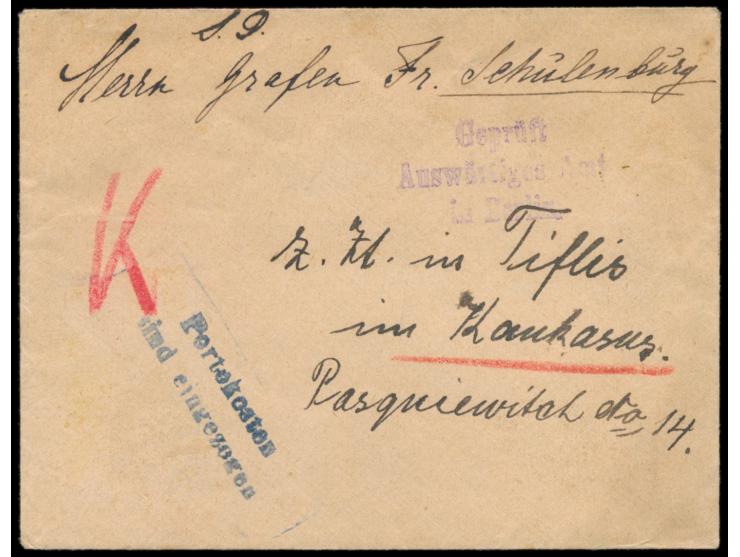 S. D.
Herrn Grafen Fr. Schulenburg
Geprüft
Auswärtiges Amt
in Berlin.
z. Zt. in Tiflis
im Kaukasus.
Pasqniewitch No 14.
K
Portokosten
sind eingezogen